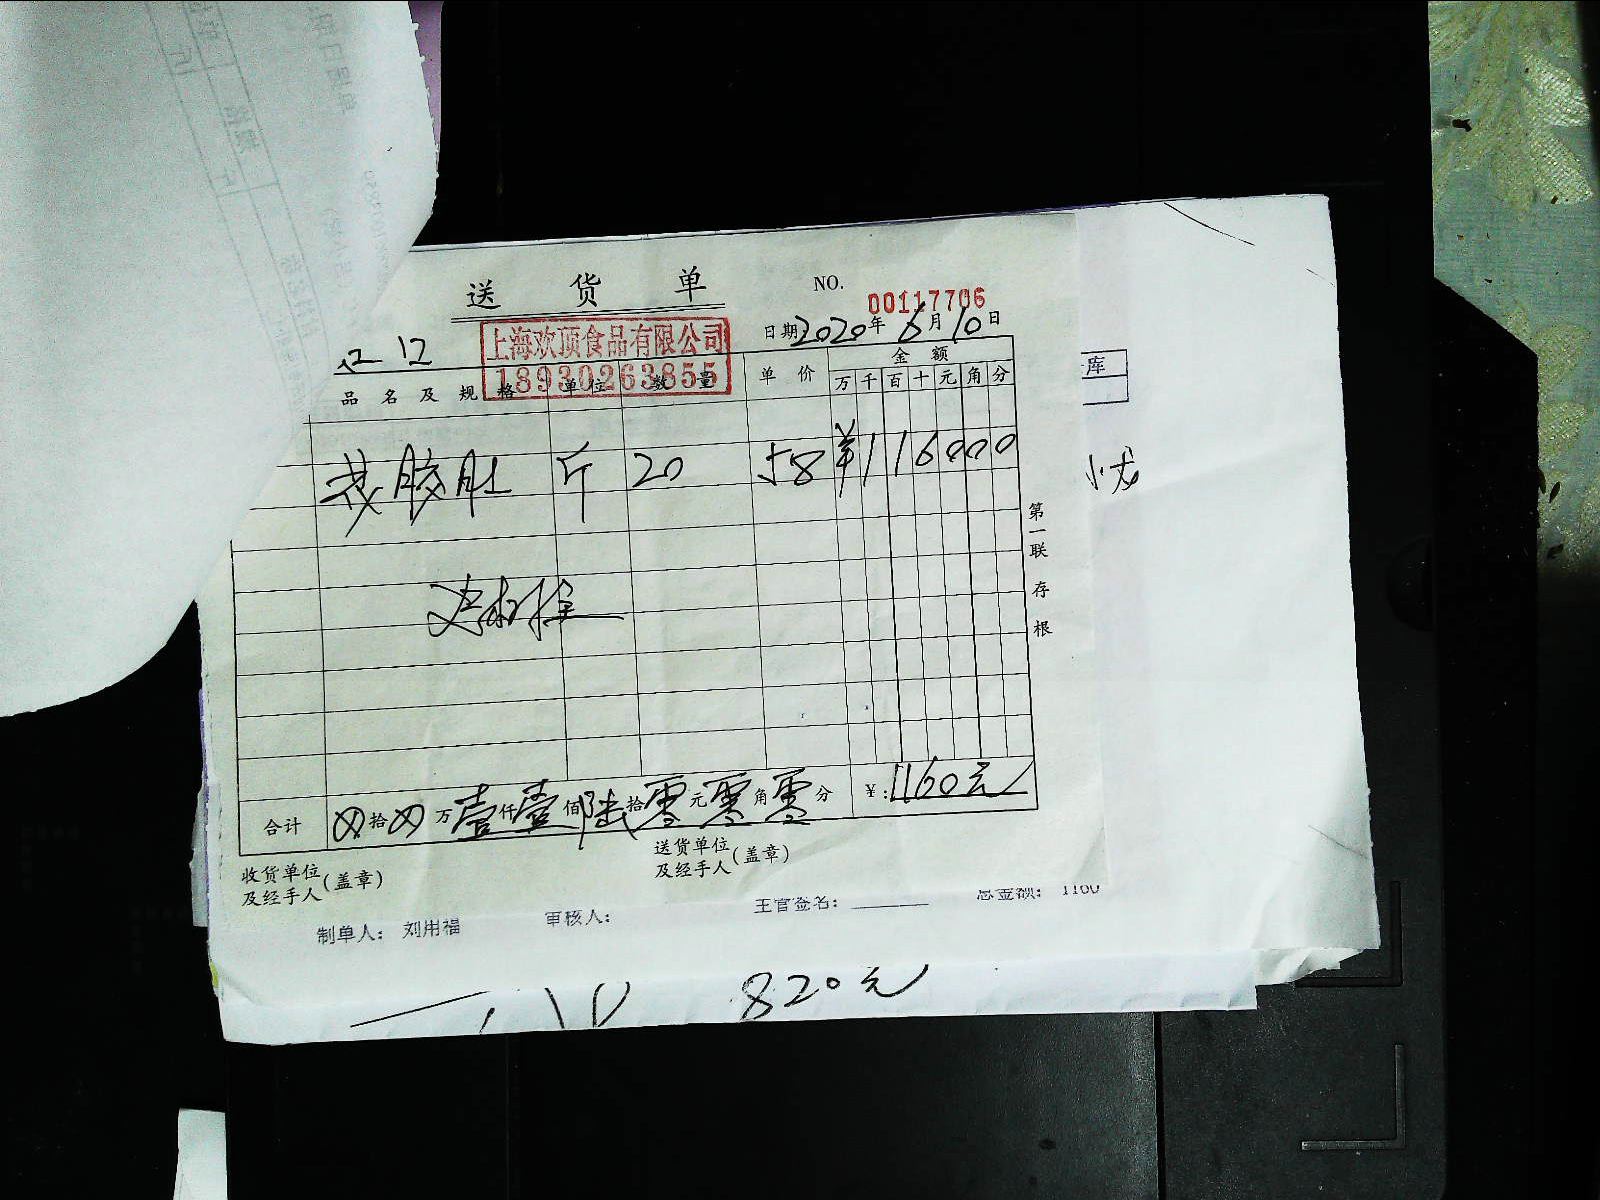 送 货 单
NO. 00117706
日期 2020 年 6 月 10 日
12
上海欢顶食品有限公司
18930263855
品 名 及 规 格 单位 数 量 单 价 金 额
万 千 百 十 元 角 分
库
花胶肚 斤 20 58 ¥116000
第一联 存根
合计 ⊗拾⊗万壹仟壹佰陆拾零元零角零分 ¥:1160元
收货单位及经手人(盖章)
送货单位及经手人(盖章)
制单人: 刘用福 审核人: 主管签名: 总金额: 1160
820元